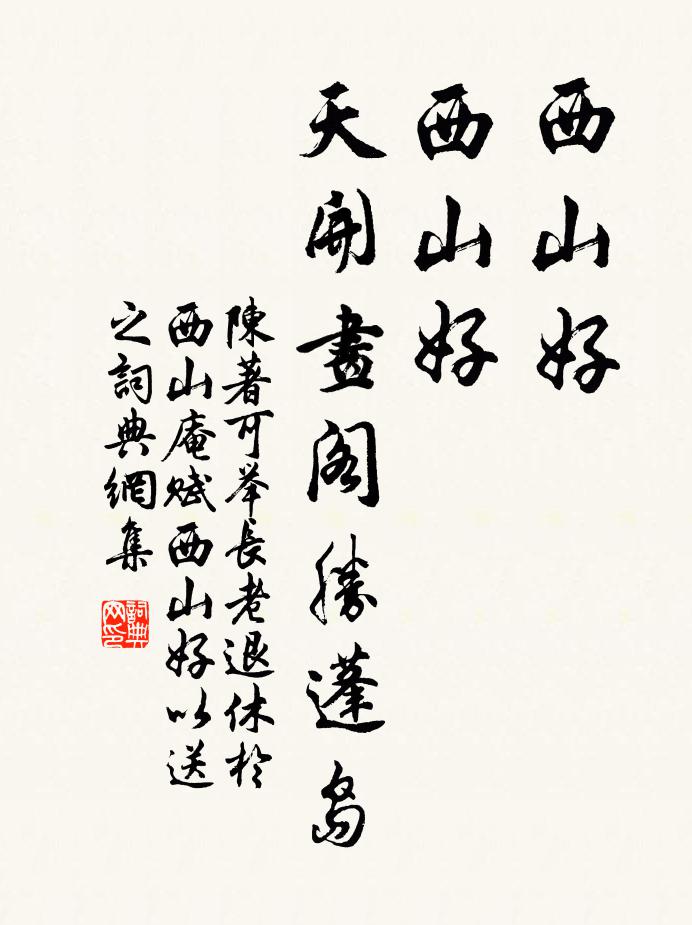 西山好
西山好
天開畫閣勝蓬島
陳著可举長老退休於
西山庵賦西山好以送
之詞典網集
詞典网印